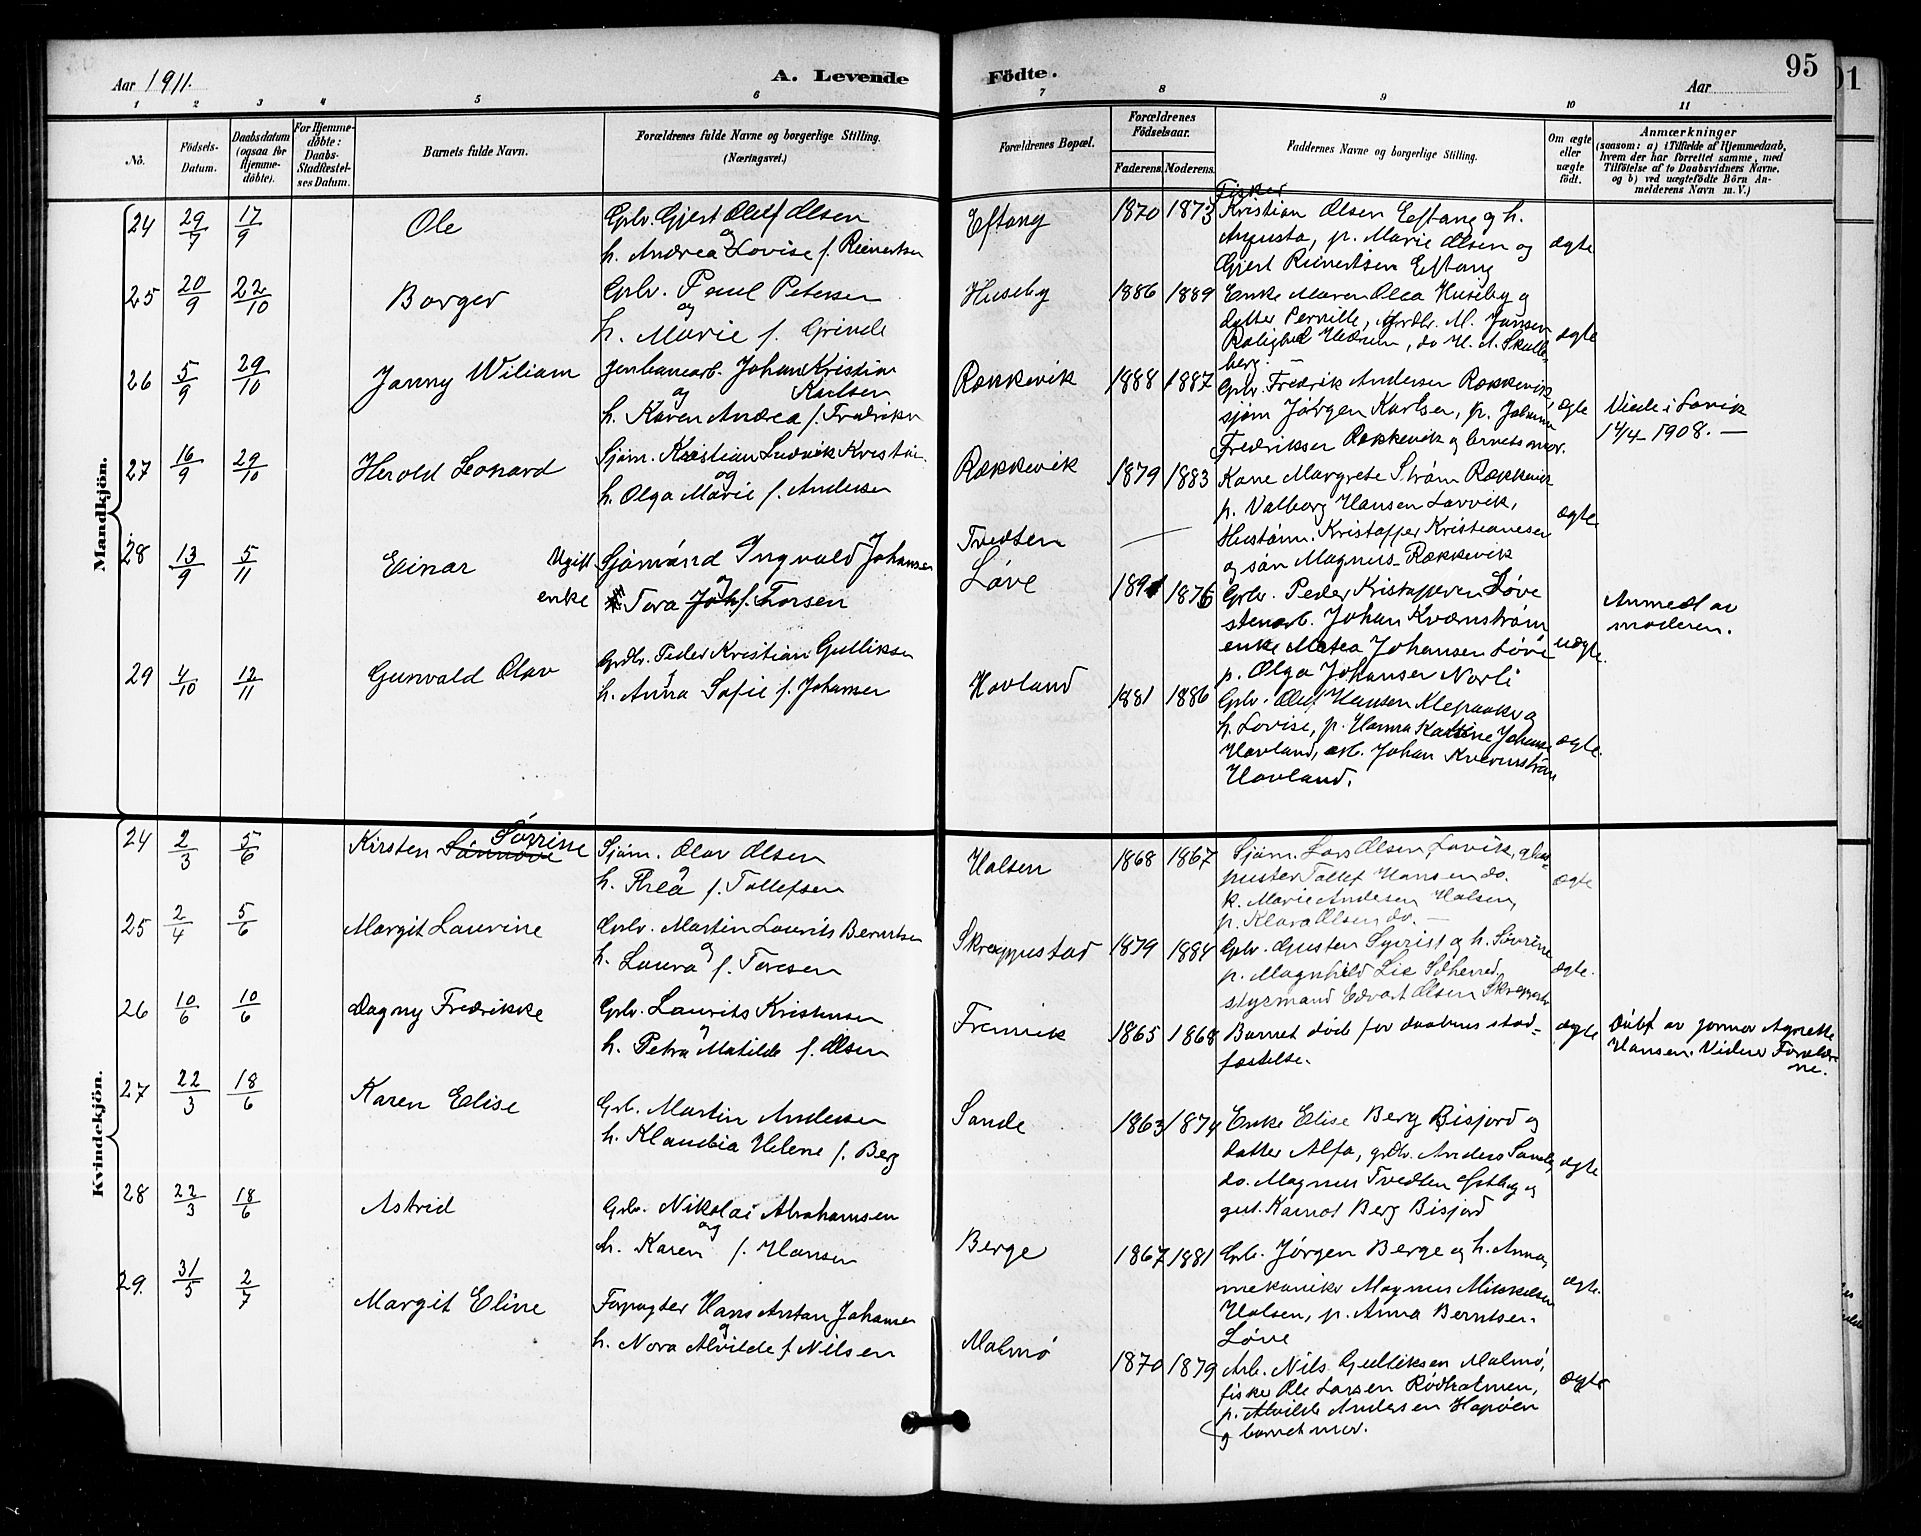 Aar 1911.
A. Levende Födte.
Aar
95
1 2 3 4 5 6 7 8 9 10 11
No.
Födsels-Datum.
Daabsdatum (ogsaa for Hjemme-döbte).
For Hjemme-döbte: Daabs-Stadfæstel-ses Datum.
Barnets fulde Navn.
Forældrenes fulde Navne og borgerlige Stilling. (Næringsvei.)
Forældrenes Bopæl.
Forældrenes Födselsaar.
Faderens. Moderens.
Faddernes Navne og borgerlige Stilling.
Om ægte eller uægte født.
Anmærkninger
(saasom: a) i Tilfælde af Hjemmedaab, hvem der har forrettet samme, med Tilföielse af to Daabsvidners Navne, og b) ved uægtefödte Börn An-melderens Navn m. V.)
Mandkjön.
24 29/7 17/9 Ole
Grbr. Gjert Oluf Olsen
og
h. Andrea Lovise f. Reinertsen
Eftang 1870 1873
Fisker
Kristian Olsen Eftang og h.
Augusta, p. Marie Olsen og
Gjert Reinertsen Eftang
ægte
25 20/9 22/10 Borger
Grbr. Paul Petersen
og
h. Marie f. Grinde
Huseby 1886 1889
Enke Maren Olea Huseby og
datter Pernille, Grdbr. M. Jansen
Rolighed Hedrum, do H. A. Skulle-
berg. —
ægte
26 5/9 29/10 Janny Wiliam
Jernbanearb. Johan Kristian
og Karlsen
h. Karen Andrea f. Fredriksen
Rækkevik 1888 1887
Grbr. Fredrik Andersen Rækkevik,
sjøm Jørgen Karlsen, p. Johanne
Fredriksen Rækkevik og barnets mor.
ægte
Viede i Larvik
14/4 1908. —
27 16/9 29/10 Herold Leonard
Sjøm. Kristian Ludvik Kristian
og
h. Olga Marie f. Andersen
Rækkevik 1879 1883
Kone Margrete Strøm Rækkevik
p. Valborg Hansen Larvik,
Hustøm. Kristoffer Kristiansen
og søn Magnus Rækkevik
ægte
28 13/9 5/11 Einar
Ugift Sjømand Ingvald Johansen
og
enke Tora Joh f. Torsen
Tvedten —
Løve 1891 1876
Grbr. Peder Kristoffersen Løve
stenarb. Johan Kvernstrøm
enke Matea Johansen Løve
p. Olga Johansen Norli
uægte.
Anmeldt av
moderen.
29 4/10 12/11 Gunvald Olav
Grdbr. Peder Kristian Gulliksen
h. Anna Sofie f. Johansen
Hovland 1881 1886
Grbr. Oluf Hansen Klepaaker og
h. Lovise, p. Hanna Katrine Johansen
Hovland, arb. Johan Kvernstrøm
Hovland.
ægte.
Kvindekjön.
24 2/3 5/6 Kirsten Sørrine
Sjøm. Olav Olsen
og
h. Thea f. Tollefsen
Halsen 1868 1867
Sjøm. Lars Olsen Larvik, glas-
puster Tollef Hansen do.
k. Marie Andersen Halsen,
p. Klara Olsen do. —
ægte
25 2/4 5/6 Margit Laurine
Grbr. Martin Laurits Berntsen
og
h. Laura f. Toresen
Skreppestad 1879 1884
Grbr. Gusten Syrist og h. Sørine
p. Magnhild Lie Idherred
styrmand Edvart Olsen Skreppestad
ægte.
26 10/6 10/6 Dagny Fredrikke
Grbr. Laurits Kristensen
og
h. Petra Matilde f. Olsen
Fremvik 1865 1868
Barnet døde før daabens stad-
fæstelse.
ægte
Døbt av jormor Agnette
Hansen. Vidner Forældre-
ne.
27 22/3 18/6 Karen Elise
Grb. Martin Andersen
h. Klaudia Helene f. Berg
Sande 1863 1874
Enke Elise Berg Bisjord og
datter Alfa, grdbr. Anders Sande,
do. Magnus Tvedten Østby og
gut. Karnot Berg Bisjord
ægte
28 22/3 18/6 Astrid
Grbr. Nikolai Abrahamsen
og
h. Karen f. Hansen
Berge 1867 1881
Grb. Jørgen Berge og h. Anna,
mekaniker Magnus Mikkelsen
Halsen, p. Anna Berntsen.
Løve
ægte.
29. 31/5 2/7 Margit Eline
Forpagter Hans Anton Johansen
og
h. Nora Alvilde f. Nilsen
Malmø 1870 1879
Arb. Nils Gulliksen Malmø,
fisker Ole Larsen Rødholmen,
p. Alvilde Andersen Hapøen
og barnets mor.
ægte